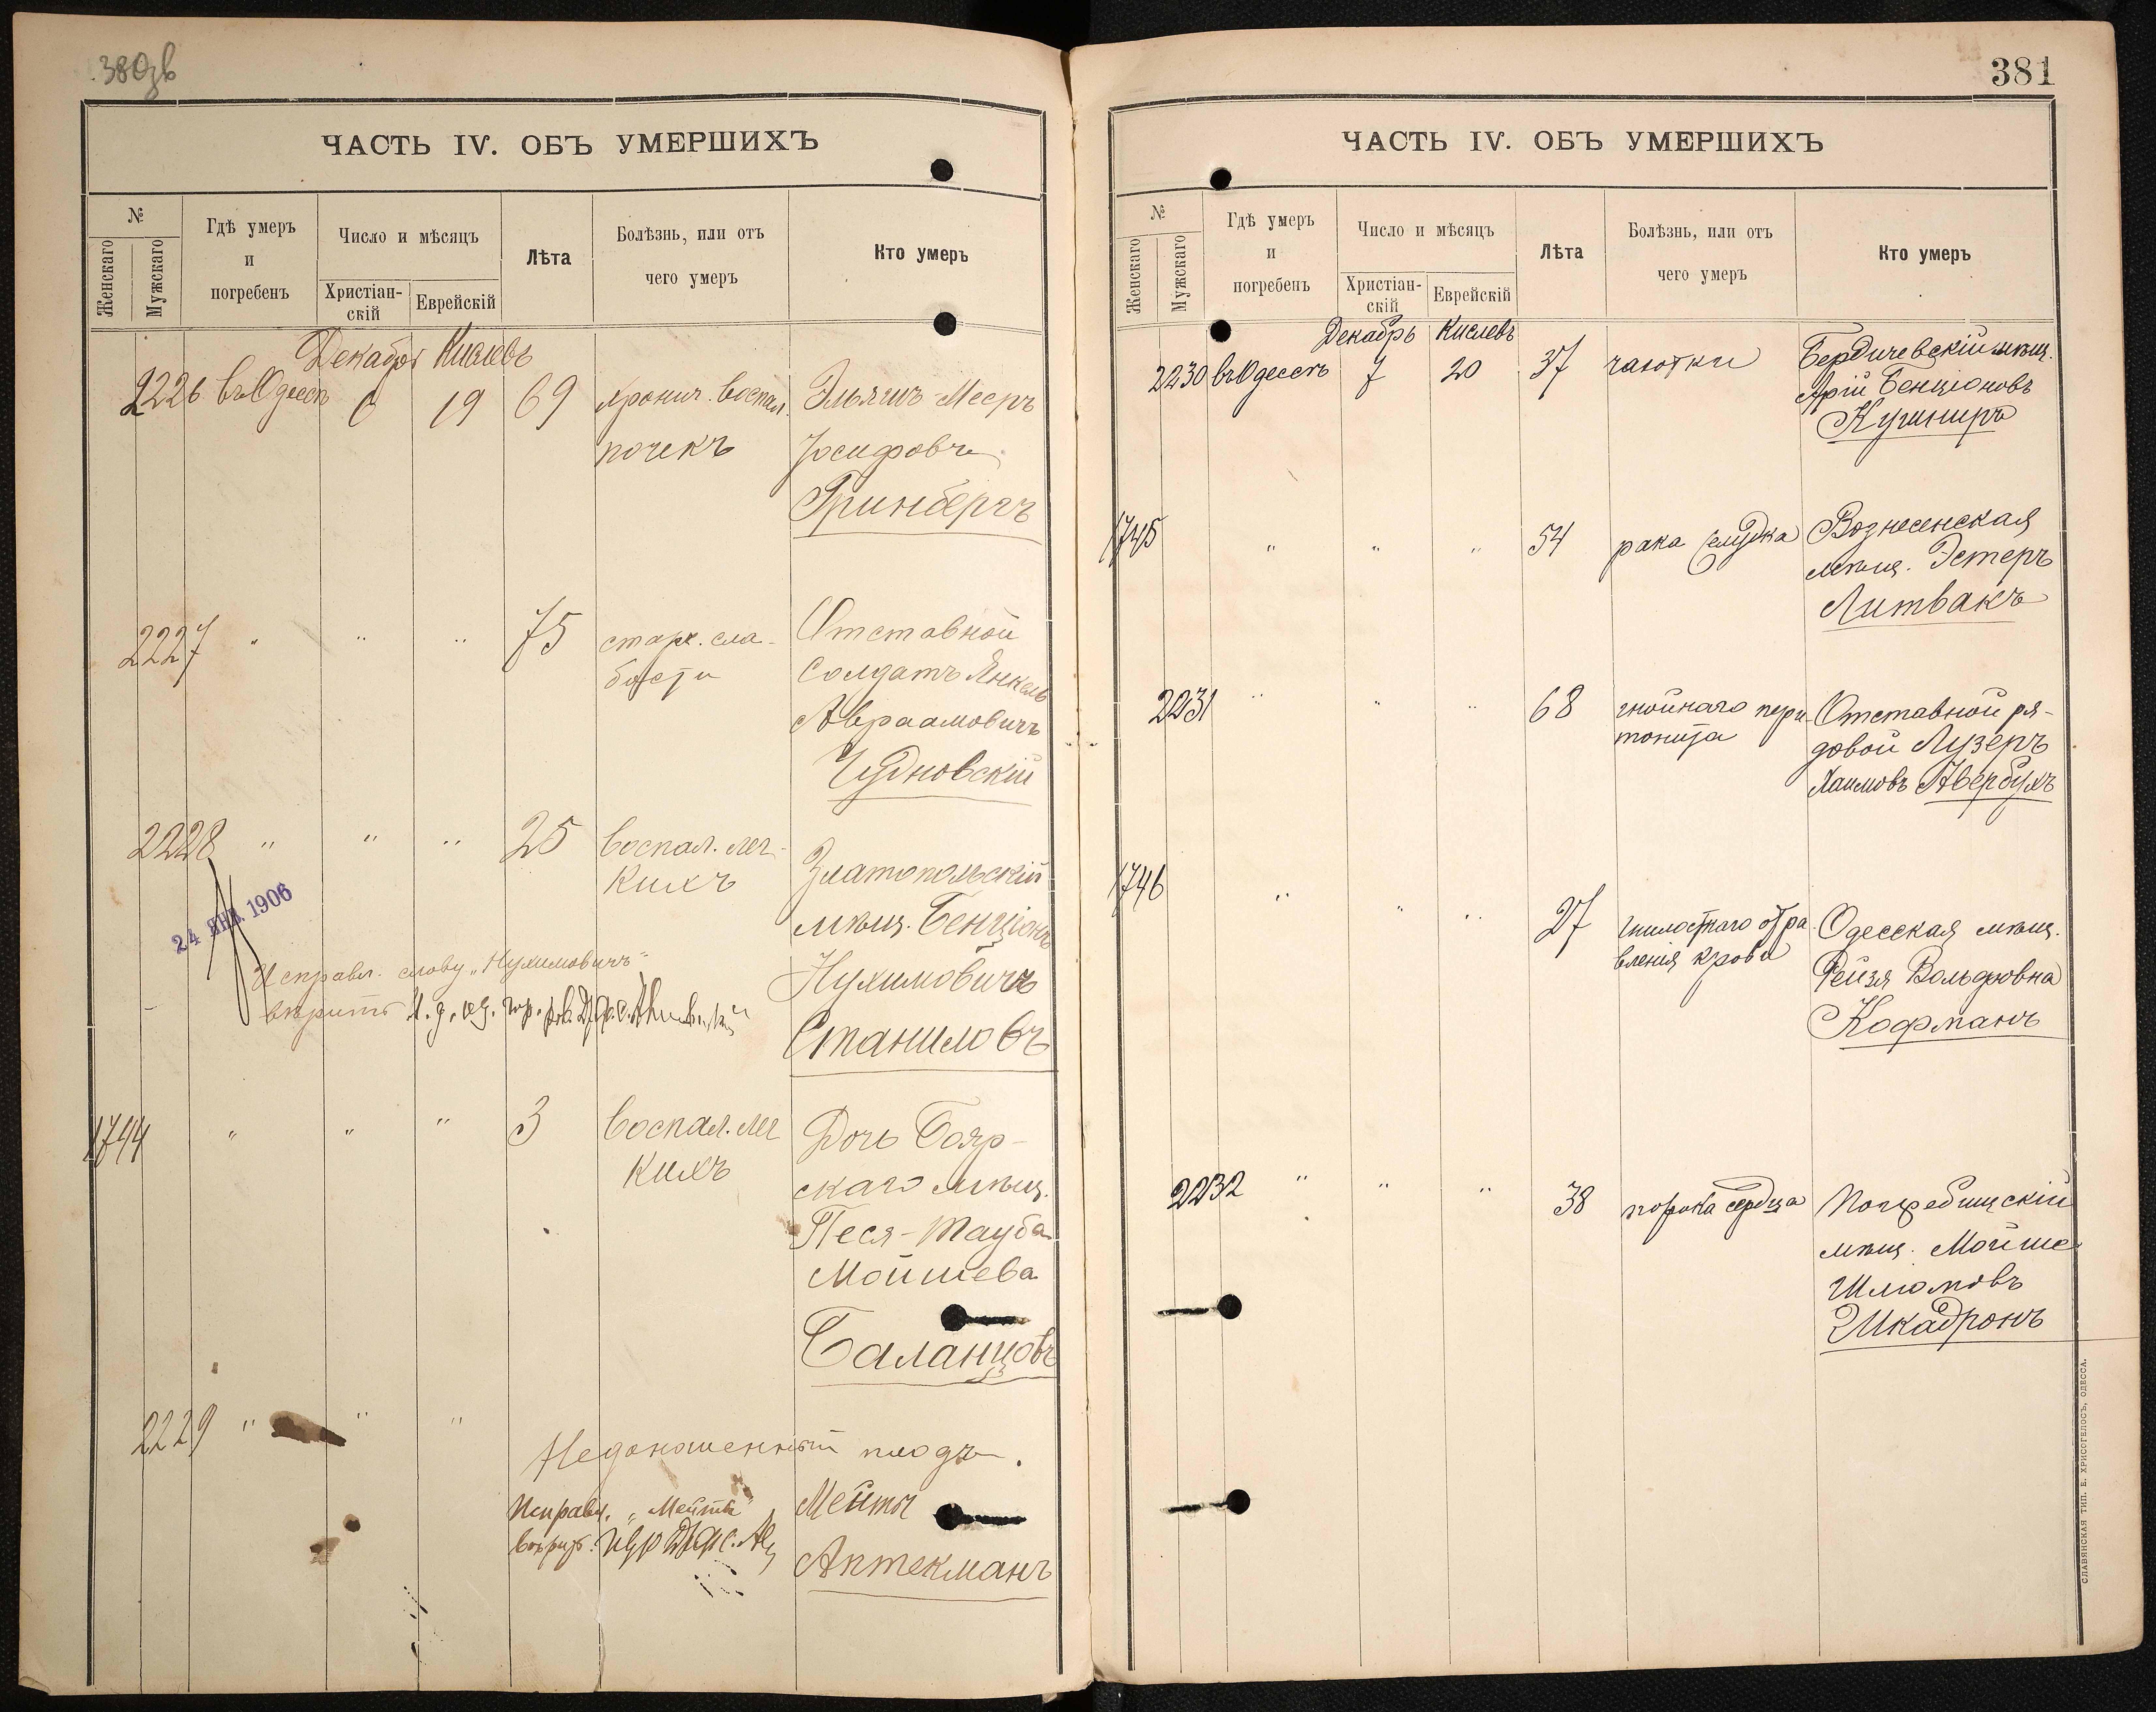 ЧАСТЬ IV. ОБЪ УМЕРШИХЪ
№
Женскаго
Мужскаго
Гдѣ умеръ
и
погребенъ
Число и мѣсяцъ
Христіан-
скій
Еврейскій
Лѣта
Болѣзнь, или отъ
чего умеръ
Кто умеръ
Декабрь Кислевъ
2226 въ Одессѣ 6 19 69 хронич. воспал. Эльяшъ-Мееръ
почекъ Іосифовъ
Гринбергъ
2227 " " " 75 старч. сла- Отставной
бости Солдатъ Янкель
Авраамовичъ
Чудновскій
2228 " " " 25 воспал. лег- Златопольскій
кихъ мѣщ. Бенціонъ
24 ЯНВ. 1906
Исправл. слову „Нухимовичъ" Нухимовичъ
вѣрить
Станиловъ
1744 " " " 3 воспал. лег Дочь Бояр-
кихъ скаго мѣщ.
Песя-Тауба
Мойшева
Баланцовъ
2229 " " " Недоношенный плодъ.
Исправл. „Мейты" Мейты
вѣрить.
Аптекманъ
381
ЧАСТЬ IV. ОБЪ УМЕРШИХЪ
№
Женскаго
Мужскаго
Гдѣ умеръ
и
погребенъ
Число и мѣсяцъ
Христіан-
скій
Еврейскій
Лѣта
Болѣзнь, или отъ
чего умеръ
Кто умеръ
Декабрь Кислевъ
2230 въ Одессѣ 7 20 37 чахотки Бердичевскій мѣщ.
Арій Бенціоновъ
Кушниръ
1745 " " " 54 рака желудка Вознесенская
мѣщ. Эстеръ
Литвакъ
2231 " " " 68 гнойнаго пери- Отставной ря-
тонита довой Лузеръ
Хаимовъ Авербухъ
1746 " " " 27 гнилостнаго отра- Одесская мѣщ.
вленія крови Рейзя Вольфовна
Кофманъ
2232 " " " 38 порока сердца Погребищскій
мѣщ. Мойше
Шлиомовъ
Шкадронъ
СЛАВЯНСКАЯ ТИП. Е. ХРИСОГЕЛОСЪ, ОДЕССА.